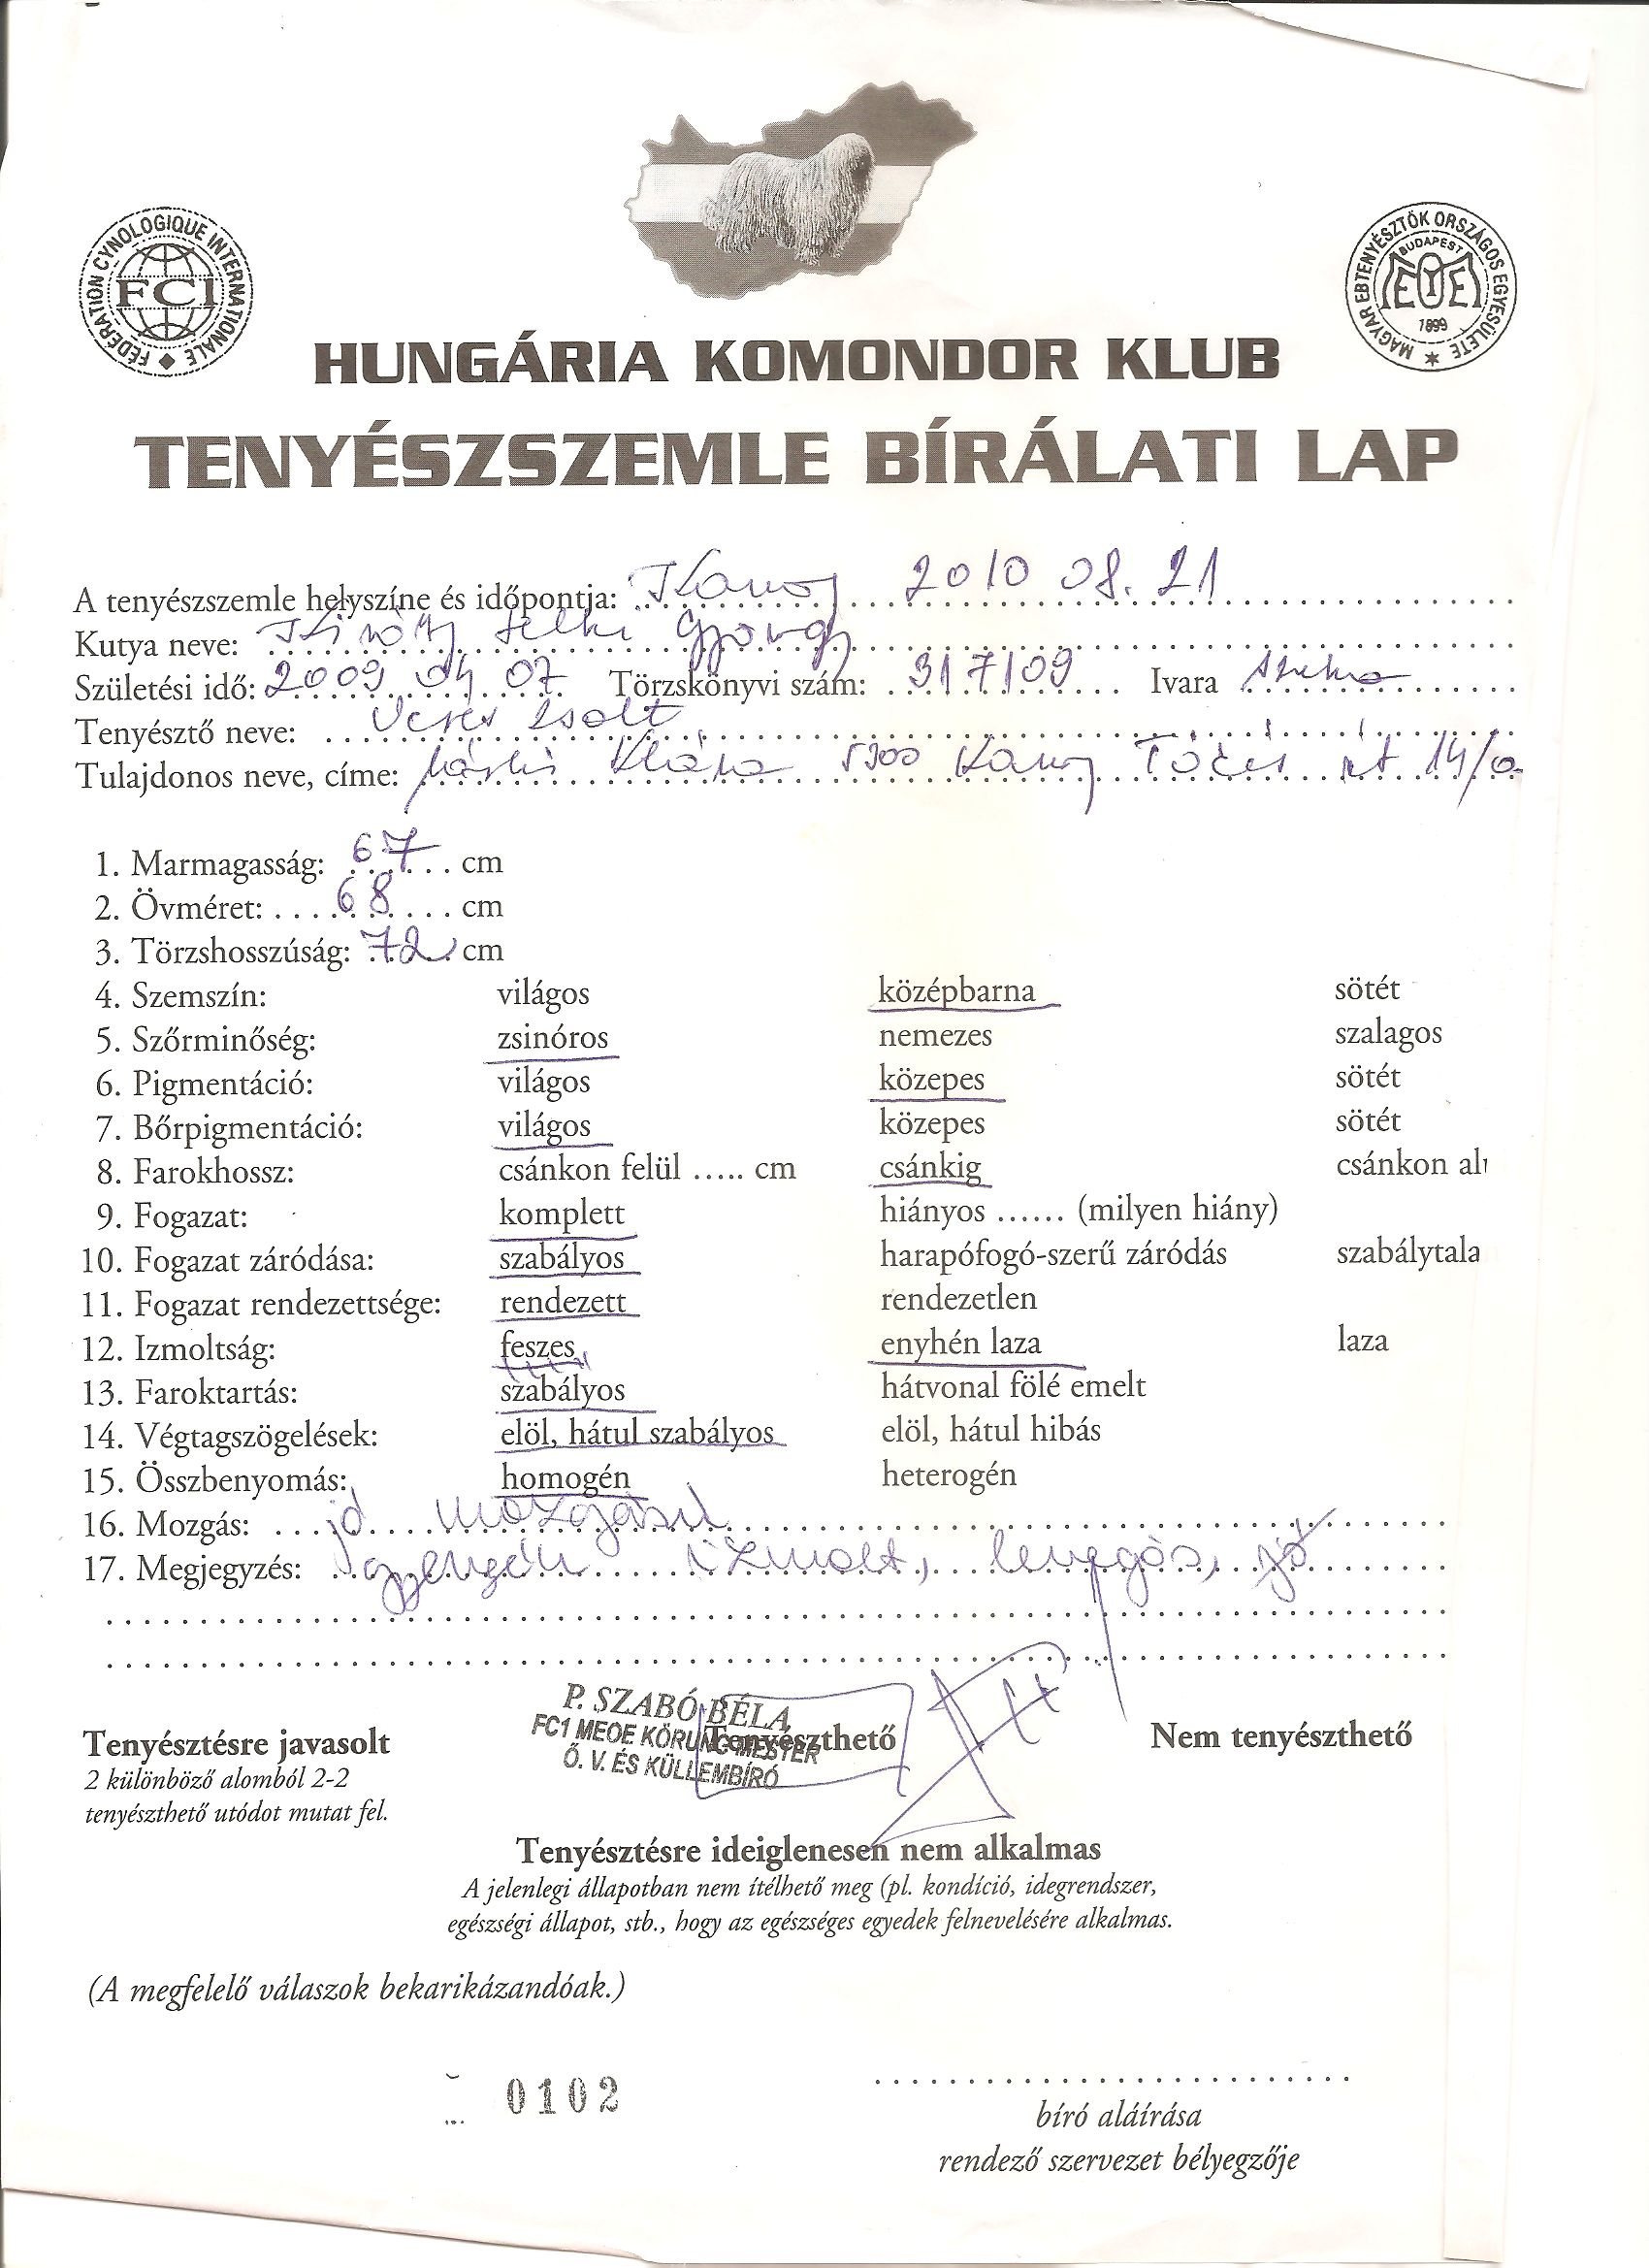 FÉDÉRATION CYNOLOGIQUE INTERNATIONALE
FCI
MAGYAR EBTENYÉSZTŐK ORSZÁGOS EGYESÜLETE
BUDAPEST
MEOE
1899
HUNGÁRIA KOMONDOR KLUB
TENYÉSZSZEMLE BÍRÁLATI LAP
A tenyészszemle helyszíne és időpontja: 2010 08. 21
Kutya neve: György
Születési idő: 2009 04 07 Törzskönyvi szám: 317/09 Ivara
Tenyésztő neve: Veres Zsolt
Tulajdonos neve, címe: 5300 út 14/a
1. Marmagasság: 67 cm
2. Övméret: 68 cm
3. Törzshosszúság: 72 cm
4. Szemszín: világos középbarna sötét
5. Szőrminőség: zsinóros nemezes szalagos
6. Pigmentáció: világos közepes sötét
7. Bőrpigmentáció: világos közepes sötét
8. Farokhossz: csánkon felül ..... cm csánkig csánkon al
9. Fogazat: komplett hiányos ...... (milyen hiány)
10. Fogazat záródása: szabályos harapófogó-szerű záródás szabálytala
11. Fogazat rendezettsége: rendezett rendezetlen
12. Izmoltság: feszes enyhén laza laza
13. Faroktartás: szabályos hátvonal fölé emelt
14. Végtagszögelések: elöl, hátul szabályos elöl, hátul hibás
15. Összbenyomás: homogén heterogén
16. Mozgás: jó mozgású
17. Megjegyzés: gyengén izmolt, levegős, jó
P. SZABÓ BÉLA
FCI MEOE KÖRUNG MESTER
Ő. V. ÉS KÜLLEMBÍRÓ
Tenyésztésre javasolt Tenyészthető Nem tenyészthető
2 különböző alomból 2-2
tenyészthető utódot mutat fel.
Tenyésztésre ideiglenesen nem alkalmas
A jelenlegi állapotban nem ítélhető meg (pl. kondíció, idegrendszer,
egészségi állapot, stb., hogy az egészséges egyedek felnevelésére alkalmas.
(A megfelelő válaszok bekarikázandóak.)
0102
bíró aláírása
rendező szervezet bélyegzője